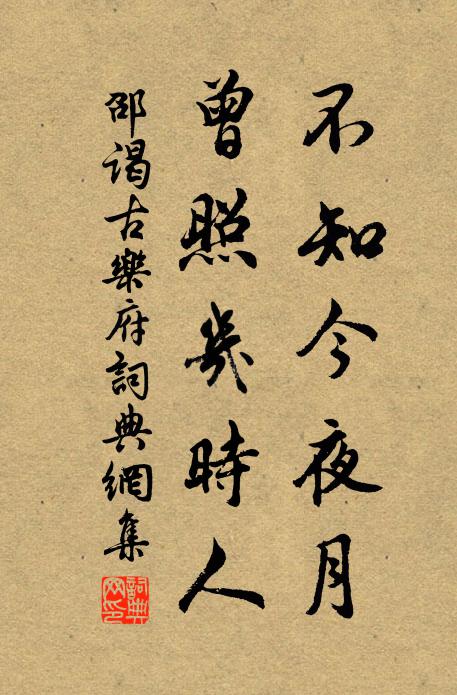 不知今夜月
曾照幾時人
邵謁古樂府詞典網集
詞典网印